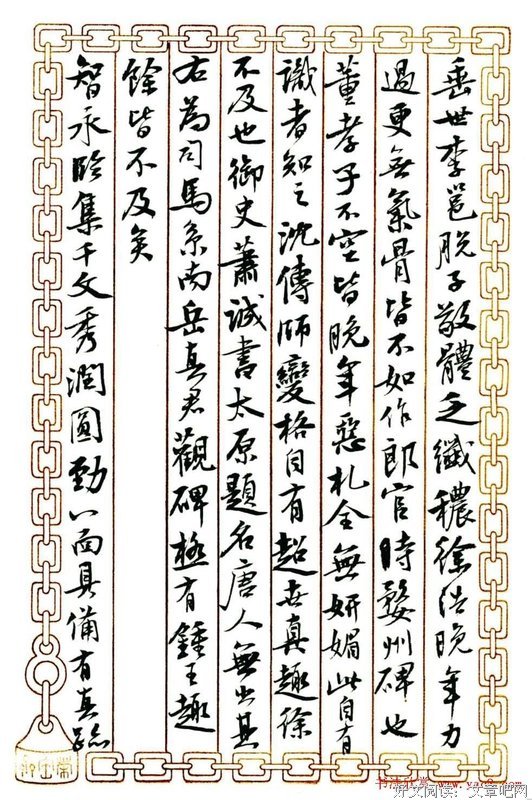 垂世李邕脱子敬體乏纖穠徐浩晚年力
過更無氣骨皆不如作郎官時婺州碑也
董孝子不空皆晚年惡札全無妍媚此自有
識者知之沈傳師變格自有超世真趣徐
不及也御史蕭誠書太原題名唐人無出其
右為司馬系南岳真君觀碑極有鍾王趣
餘皆不及矣
智永臨集千文秀潤圓勁八面具備有真跡
好文阅读：文章吧网